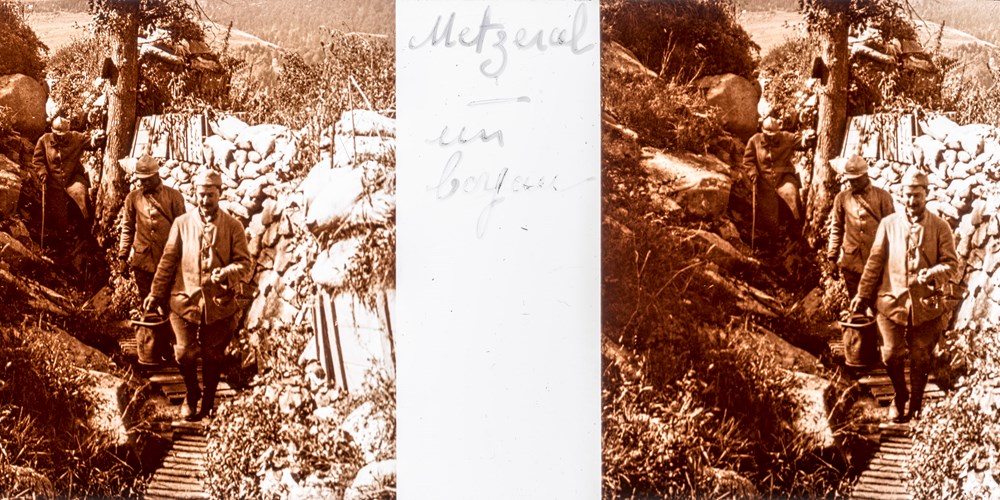 Metzeral
un
boyau